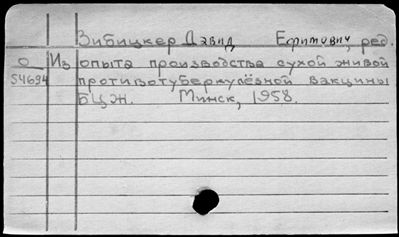 Зибицкер Давид Ефимович, ред.
О Из опыта производства сухой живой
54694 противотуберкулёзной вакцины
БЦЖ. Минск, 1958.